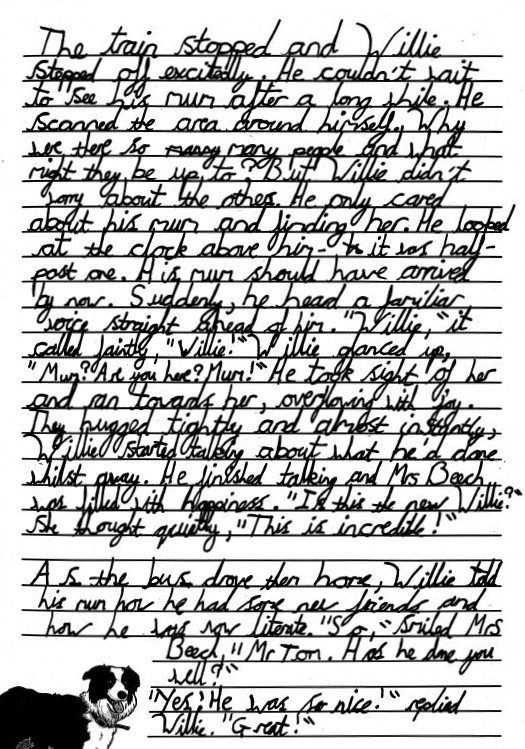 The train stopped and Willie
stepped off excitedly. He couldn't wait
to see his mum after a long while. He
scanned the area around himself. Why
were there so many people and what
might they be up to? But Willie didn't
worry about the others. He only cared
about his mum and finding her. He looked
at the clock above him - it was half-
past one. His mum should have arrived
by now. Suddenly, he heard a familiar
voice straight ahead of him. "Willie," it
called faintly, "Willie!" Willie glanced up,
"Mum? Are you here? Mum!" He took sight of her
and ran towards her, overflowing with joy.
They hugged tightly and almost instantly,
Willie started talking about what he'd done
whilst away. He finished talking and Mrs Beech
was filled with happiness. "Is this the new Willie?"
she thought quietly, "This is incredible!"
As the bus drove them home, Willie told
his mum how he had some new friends and
how he was now literate. "So," smiled Mrs
Beech, "Mr Tom. Has he done you
well?"
"Yes! He was so nice!" replied
Willie. "Great!"